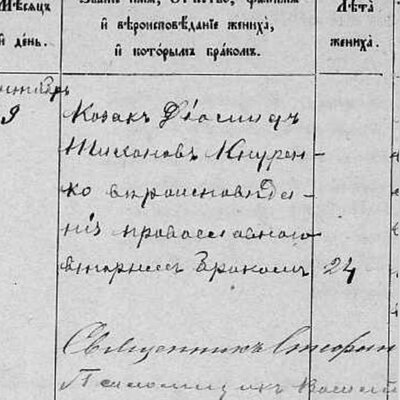 Мѣсяцъ
и день.
Званіе, имя, отчество, фамилія
и вѣроисповѣданіе жениха,
и которымъ бракомъ.
Лѣта
жениха.
9
Козакъ Діомидъ
Тихоновъ Кнурен-
ко вѣроисповѣда-
нія православнаго
вторымъ бракомъ
24
Священникъ
Псаломщикъ Василій